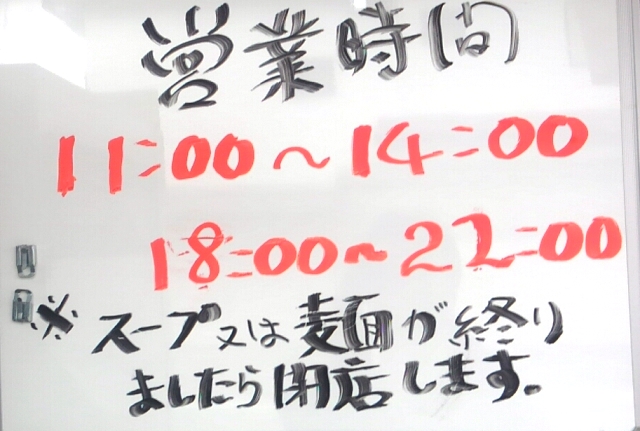 営業時間
11:00〜14:00
18:00〜22:00
※スープ又は麺が終り
ましたら閉店します。